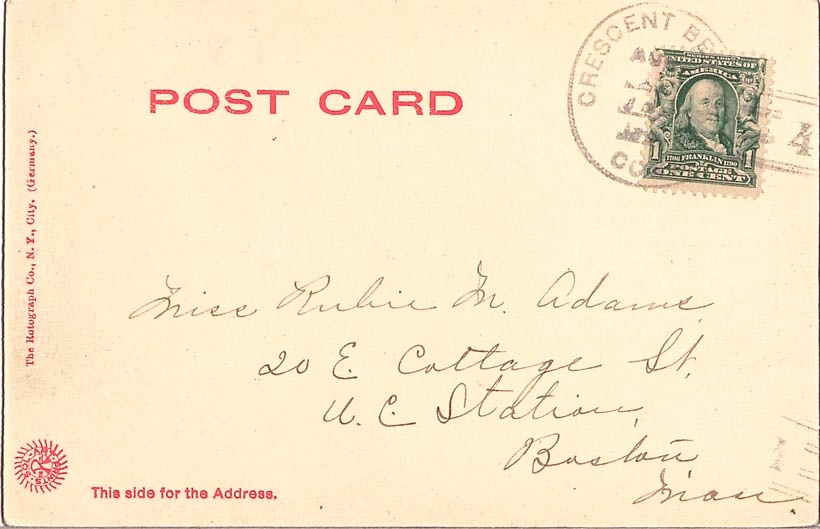 POST CARD
CRESCENT BE
AU
CO
SERIES 1902
UNITED STATES OF
AMERICA
1 1706 FRANKLIN 1790 1
POSTAGE
ONE CENT
4
The Rotograph Co., N. Y., City. (Germany.)
Miss Rubie M. Adams
20 E. Cottage St.
U. C. Station,
Boston
Mass.
This side for the Address.